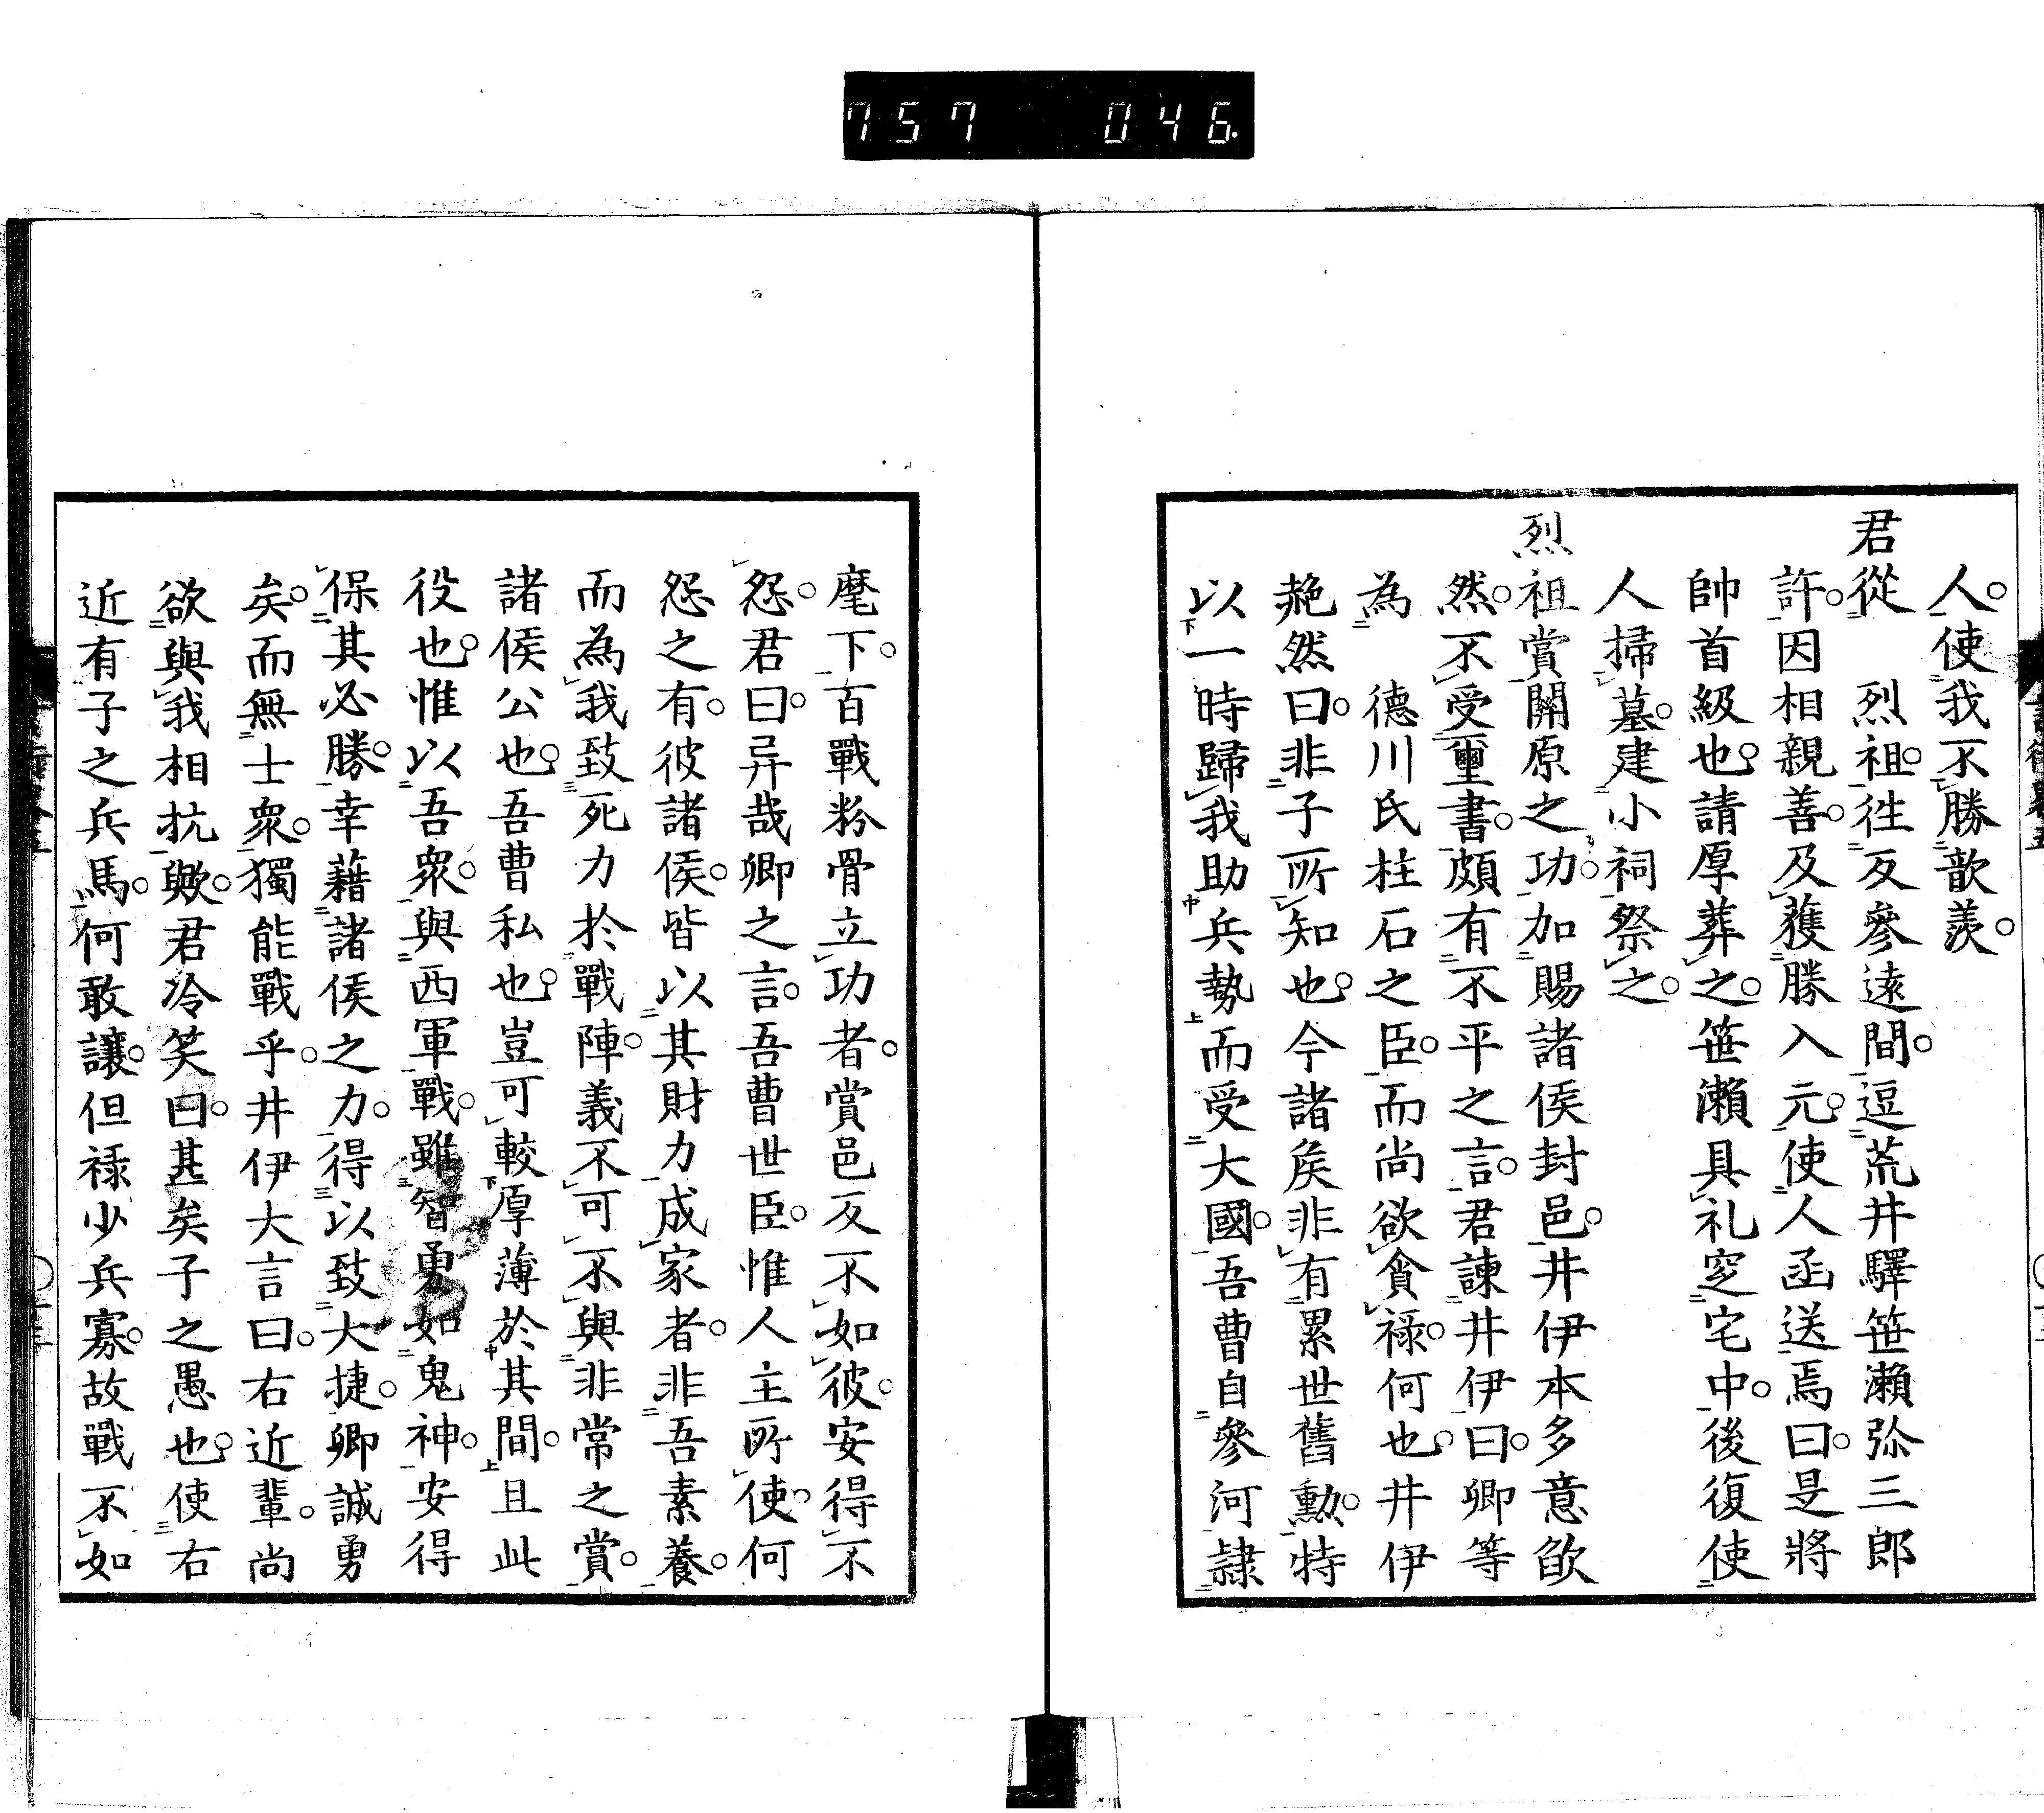 757 046
人使我不勝歆羨
君從 烈祖往反參遠間逗荒井驛笹瀨弥三郎
許因相親善及獲勝入元使人函送焉曰是將
帥首級也請厚葬之笹瀨具礼窆宅中後復使
人掃墓建小祠祭之
烈祖賞關原之功加賜諸侯封邑井伊本多意欿
然不受璽書頗有不平之言君諫井伊曰卿等
為 德川氏柱石之臣而尚欲貪祿何也井伊
赩然曰非子所知也今諸侯非有累世舊勲特
以一時歸我助兵勢而受大國吾曹自參河隷
麾下百戰粉骨立功者賞邑反不如彼安得不
怨君曰异哉卿之言吾曹世臣惟人主所使何
怨之有彼諸侯皆以其財力成家者非吾素養
而為我致死力於戰陣義不可不與非常之賞
諸侯公也吾曹私也豈可較厚薄於其間且此
役也惟以吾衆與西軍戰雖智勇如鬼神安得
保其必勝幸藉諸侯之力得以致大捷卿誠勇
矣而無士衆獨能戰乎井伊大言曰右近輩尚
欲與我相抗歟君冷笑曰甚矣子之愚也使右
近有子之兵馬何敢讓但祿少兵寡故戰不如